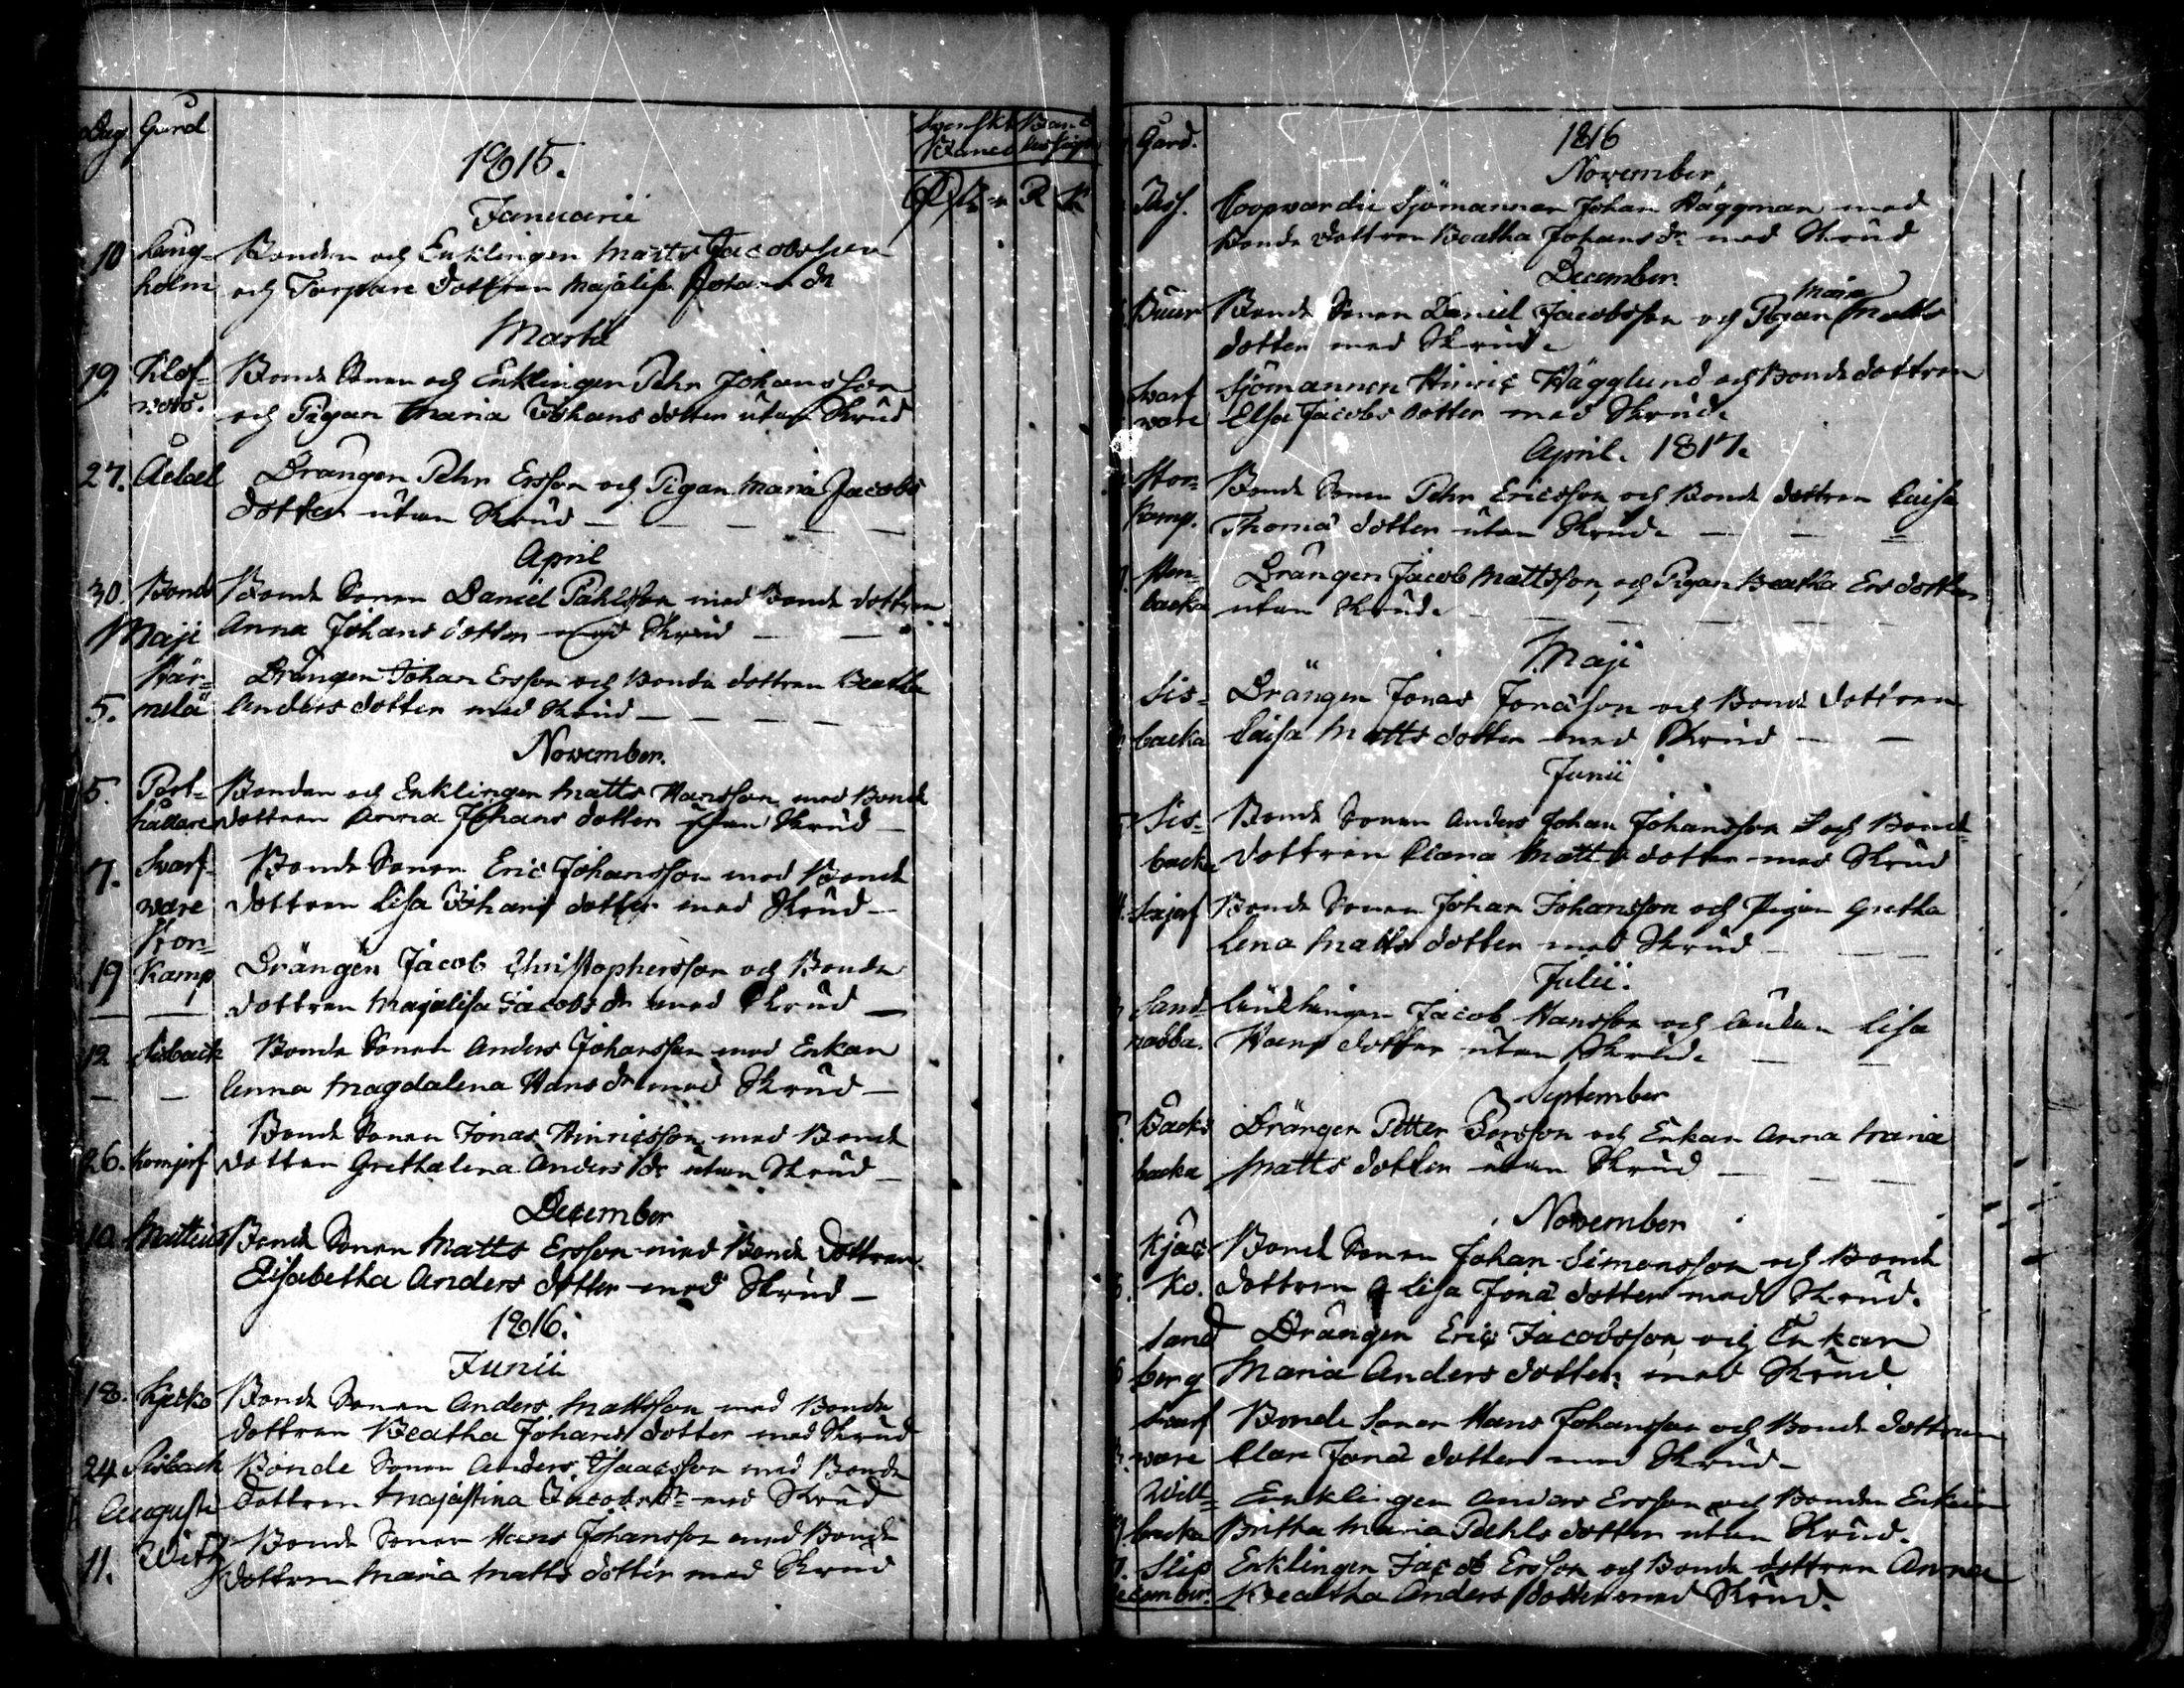 Dag Gård
Svenskt Banco
1815.
Januarii
10 Lång= Bonden och Enklingen Matts Jacobsson
holm och Torpare dottren Majalisa Johans dr
Martii
19. Klof= Bonde Sonen och Enklingen Pehr Johansson
och Pigan Maria Johans dotter utan Skrud
27. Drängen Pehr Ersson och Pigan Maria Jacobs
dotter utan Skrud
April
30. Bonds Bonde Sonen Daniel Påhlsson med Bonde dottren
Maji Anna Johans dotter med Skrud
Här= Drängen Johan Ersson och Bonde dottren Beatha
5. melä Anders dotter med Skrud
November.
5. Post= Bonden och Enklingen Matts Hansson med Bonde
hållare dottren Anna Johans dotter utan Skrud
7. Svarf Bonde Sonen Eric Johansson med Bonde
vare dottren Lisa Johans dotter med Skrud
Stor=
19 Kamp Drängen Jacob Christophersson och Bonde
dottren Majalisa Jacobs dr med Skrud
12 Sisback Bonde Sonen Anders Johansson med Enkan
Anna Magdalena Hans dr med Skrud
Bonde Sonen Jonas Hinricsson med Bonde
26. dottren Grethalena Anders dr utan Skrud
December
10 Mattus Bonde Sonen Matts Ersson med Bonde dottren
Elisabetha Anders dotter med Skrud
1816.
Junii
18. Kjäcko Bonde Sonen Anders Mattsson med Bonde
dottren Beatha Johans dotter med Skrud
24 Sisback Bonde Sonen Anders Isaacsson med Bonde
Augusti dottren Majastina Jacobs dr med Skrud
11. Bonde Sonen Hans Johansson med Bonde
dottren Maria Matts dotter med Skrud
Gård.
1816
November
Coopvardie Sjömannen Johan Häggman med
Bonde dottren Beatha Johans dr med Skrud
December.
Maja
Buur Bonde Sonen Daniel Jacobsson och Pigan Matts
dotter med Skrud.
Svarf Sjömannen Hinric Hägglund och Bonde dottren
vare Elsa Jacobs dotter med Skrud.
April. 1817.
Stor= Bonde Sonen Pehr Ericsson och Bonde dottren Caisa
kamp. Thomä dotter utan Skrud.
Sten= Drängen Jacob Mattsson, och Pigan Beatha Ers dotter
backa utan Skrud.
Maji
Sis= Drängen Jonas Jonäson och Bonde dottren
backa Caisa Matts dotter med Skrud
Junii
Sis= Bonde Sonen Anders Johan Johansson och Bonde
backa dottren Clara Matts dotter med Skrud
Bonde Sonen Johan Johansson och Pigan Gretha
Lena Matts dotter med Skrud
Julii.
Sand Jacob Hansson och Lisa
nabba. Hans dotter utan Skrud.
September
Backs Drängen Petter Persson och Enkan Anna Maria
backa Matts dotter utan Skrud
November
Kjäc Bonde Sonen Johan Simonsson och Bonde
ko. dottren Lisa Jonä dotter med Skrud.
Sand Drängen Eric Jacobsson och Enkan
berg Maria Anders dotter med Skrud
Svarf Bonde Sonen Hans Johansson och Bonde dottren
vare Clara Jonä dotter med Skrud
Will= Enklingen Anders Ersson och Bonde Enkan
backa Britha Maria Påhls dotter utan Skrud.
Slip Enklingen Jacob Ersson och Bonde dottren Anna
ecember. Beatha Anders dotter med Skrud.